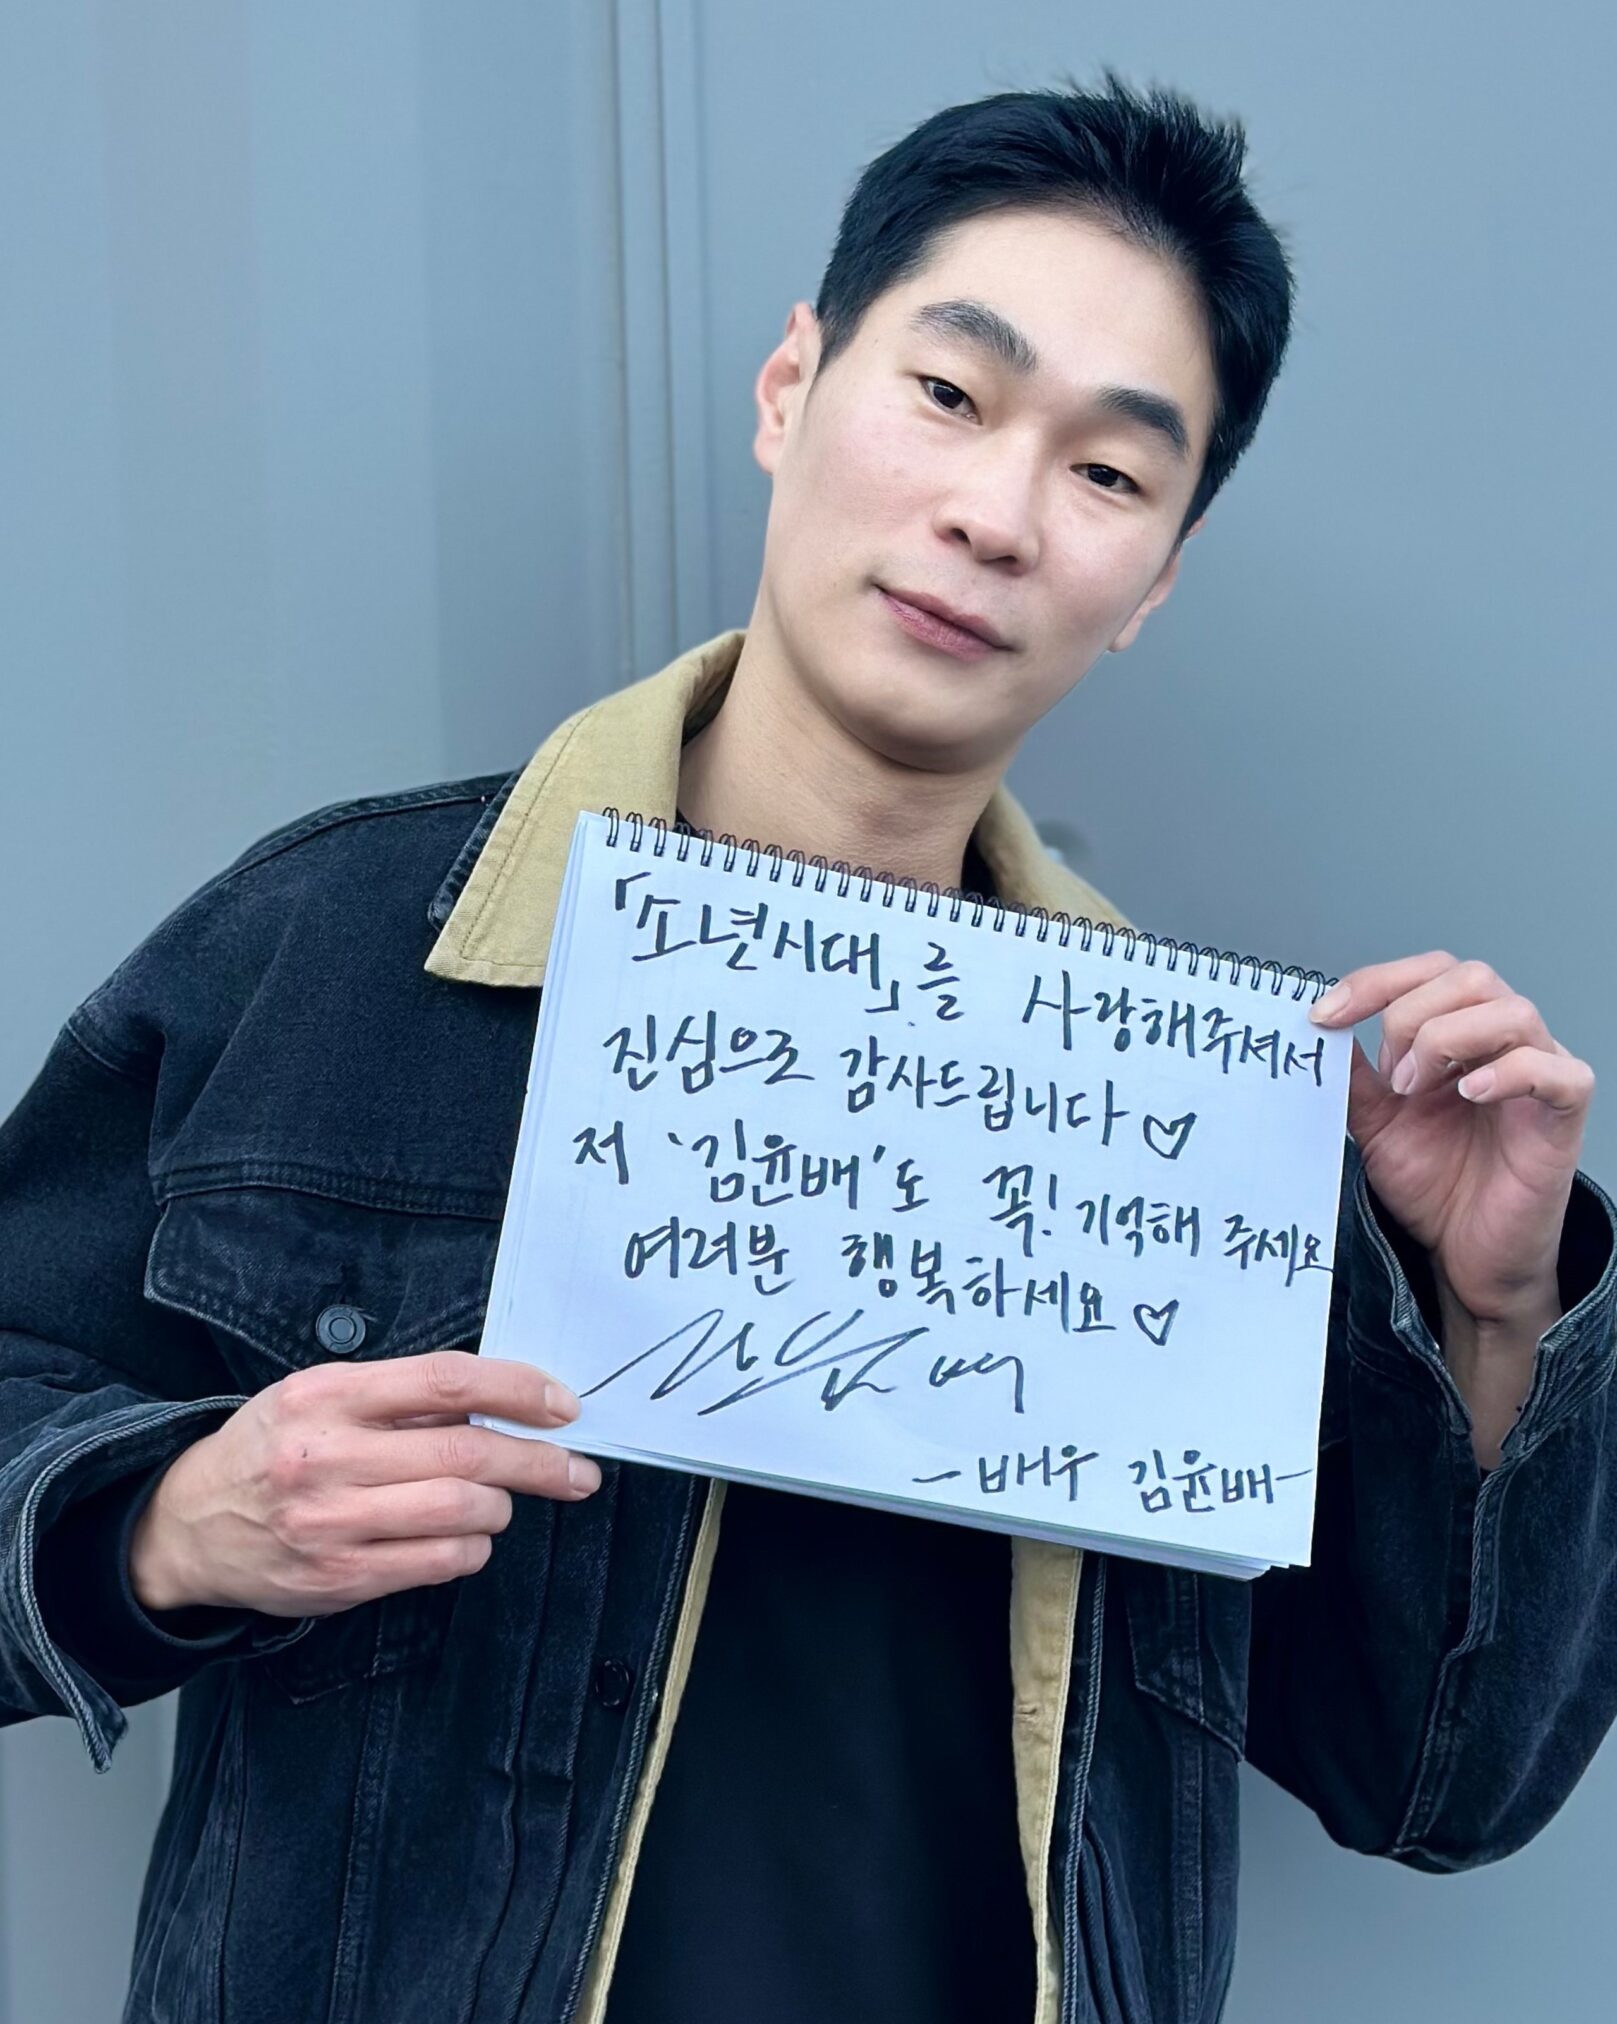 「소년시대」를 사랑해주셔서
진심으로 감사드립니다♡
저 '김윤배'도 꼭! 기억해 주세요
여러분 행복하세요♡
-배우 김윤배-